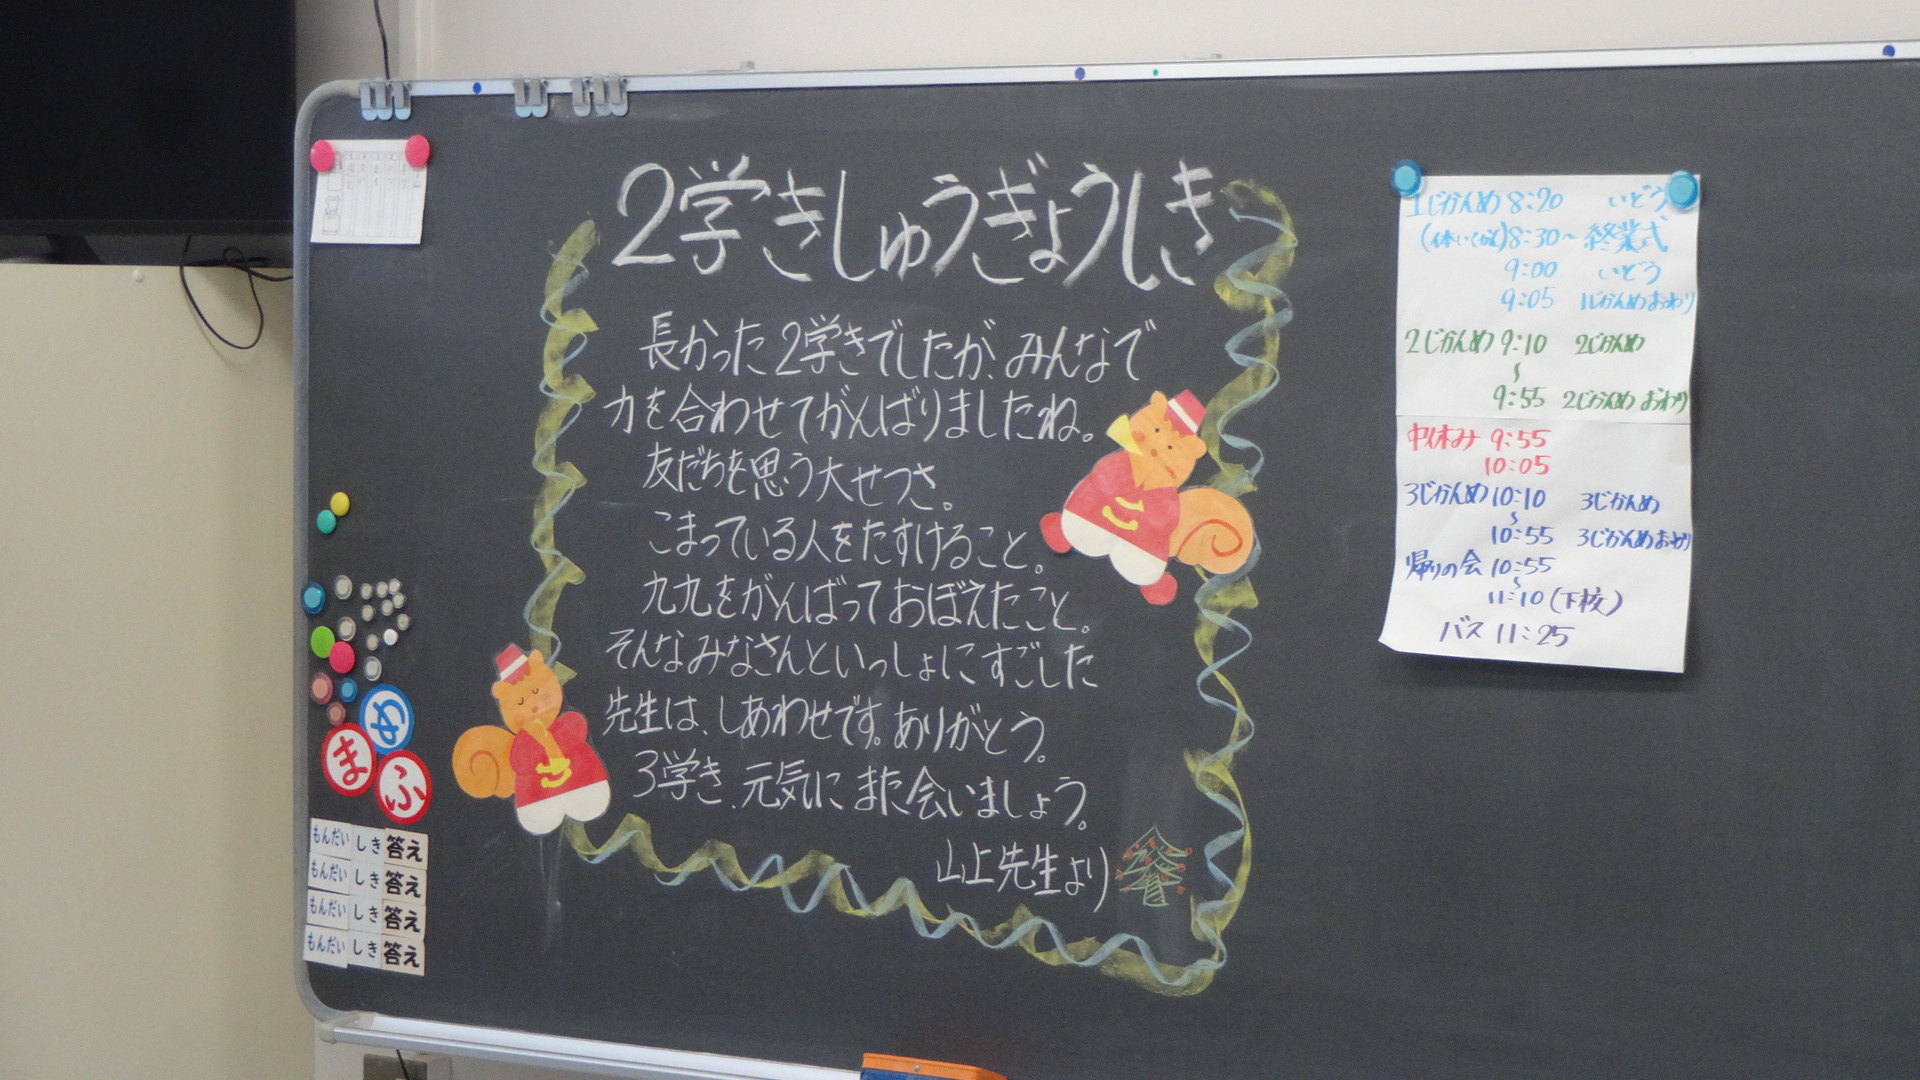 2学きしゅうぎょうしき
長かった2学きでしたが、みんなで
力を合わせてがんばりましたね。
友だちを思う大せつさ。
こまっている人をたすけること。
九九をがんばっておぼえたこと。
そんなみなさんといっしょにすごした
先生は、しあわせです。ありがとう。
3学き、元気にまた会いましょう。
山上先生より
1じかんめ 8:20 いどう
(体いくかん) 8:30～ 終業式
9:00 いどう
9:05 1じかんめおわり
2じかんめ 9:10 2じかんめ
～
9:55 2じかんめ おわり
中休み 9:55
10:05
3じかんめ 10:10 3じかんめ
～
10:55 3じかんめおわり
帰りの会 10:55
～
11:10 (下校)
バス 11:25
め
ま
ふ
もんだい しき 答え
もんだい しき 答え
もんだい しき 答え
もんだい しき 答え